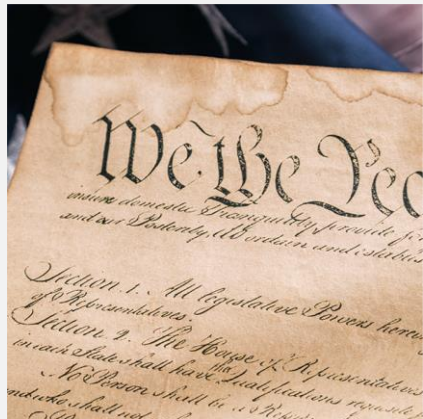 We the Peo
insure domestic Tranquility, provide for
and our Posterity, do ordain and establis
Section. 1. All legislative Powers herein
of Representatives.
Section. 2. The House of Representatives
in each State shall have the Qualifications requisite
No Person shall be a Representative
and who shall not